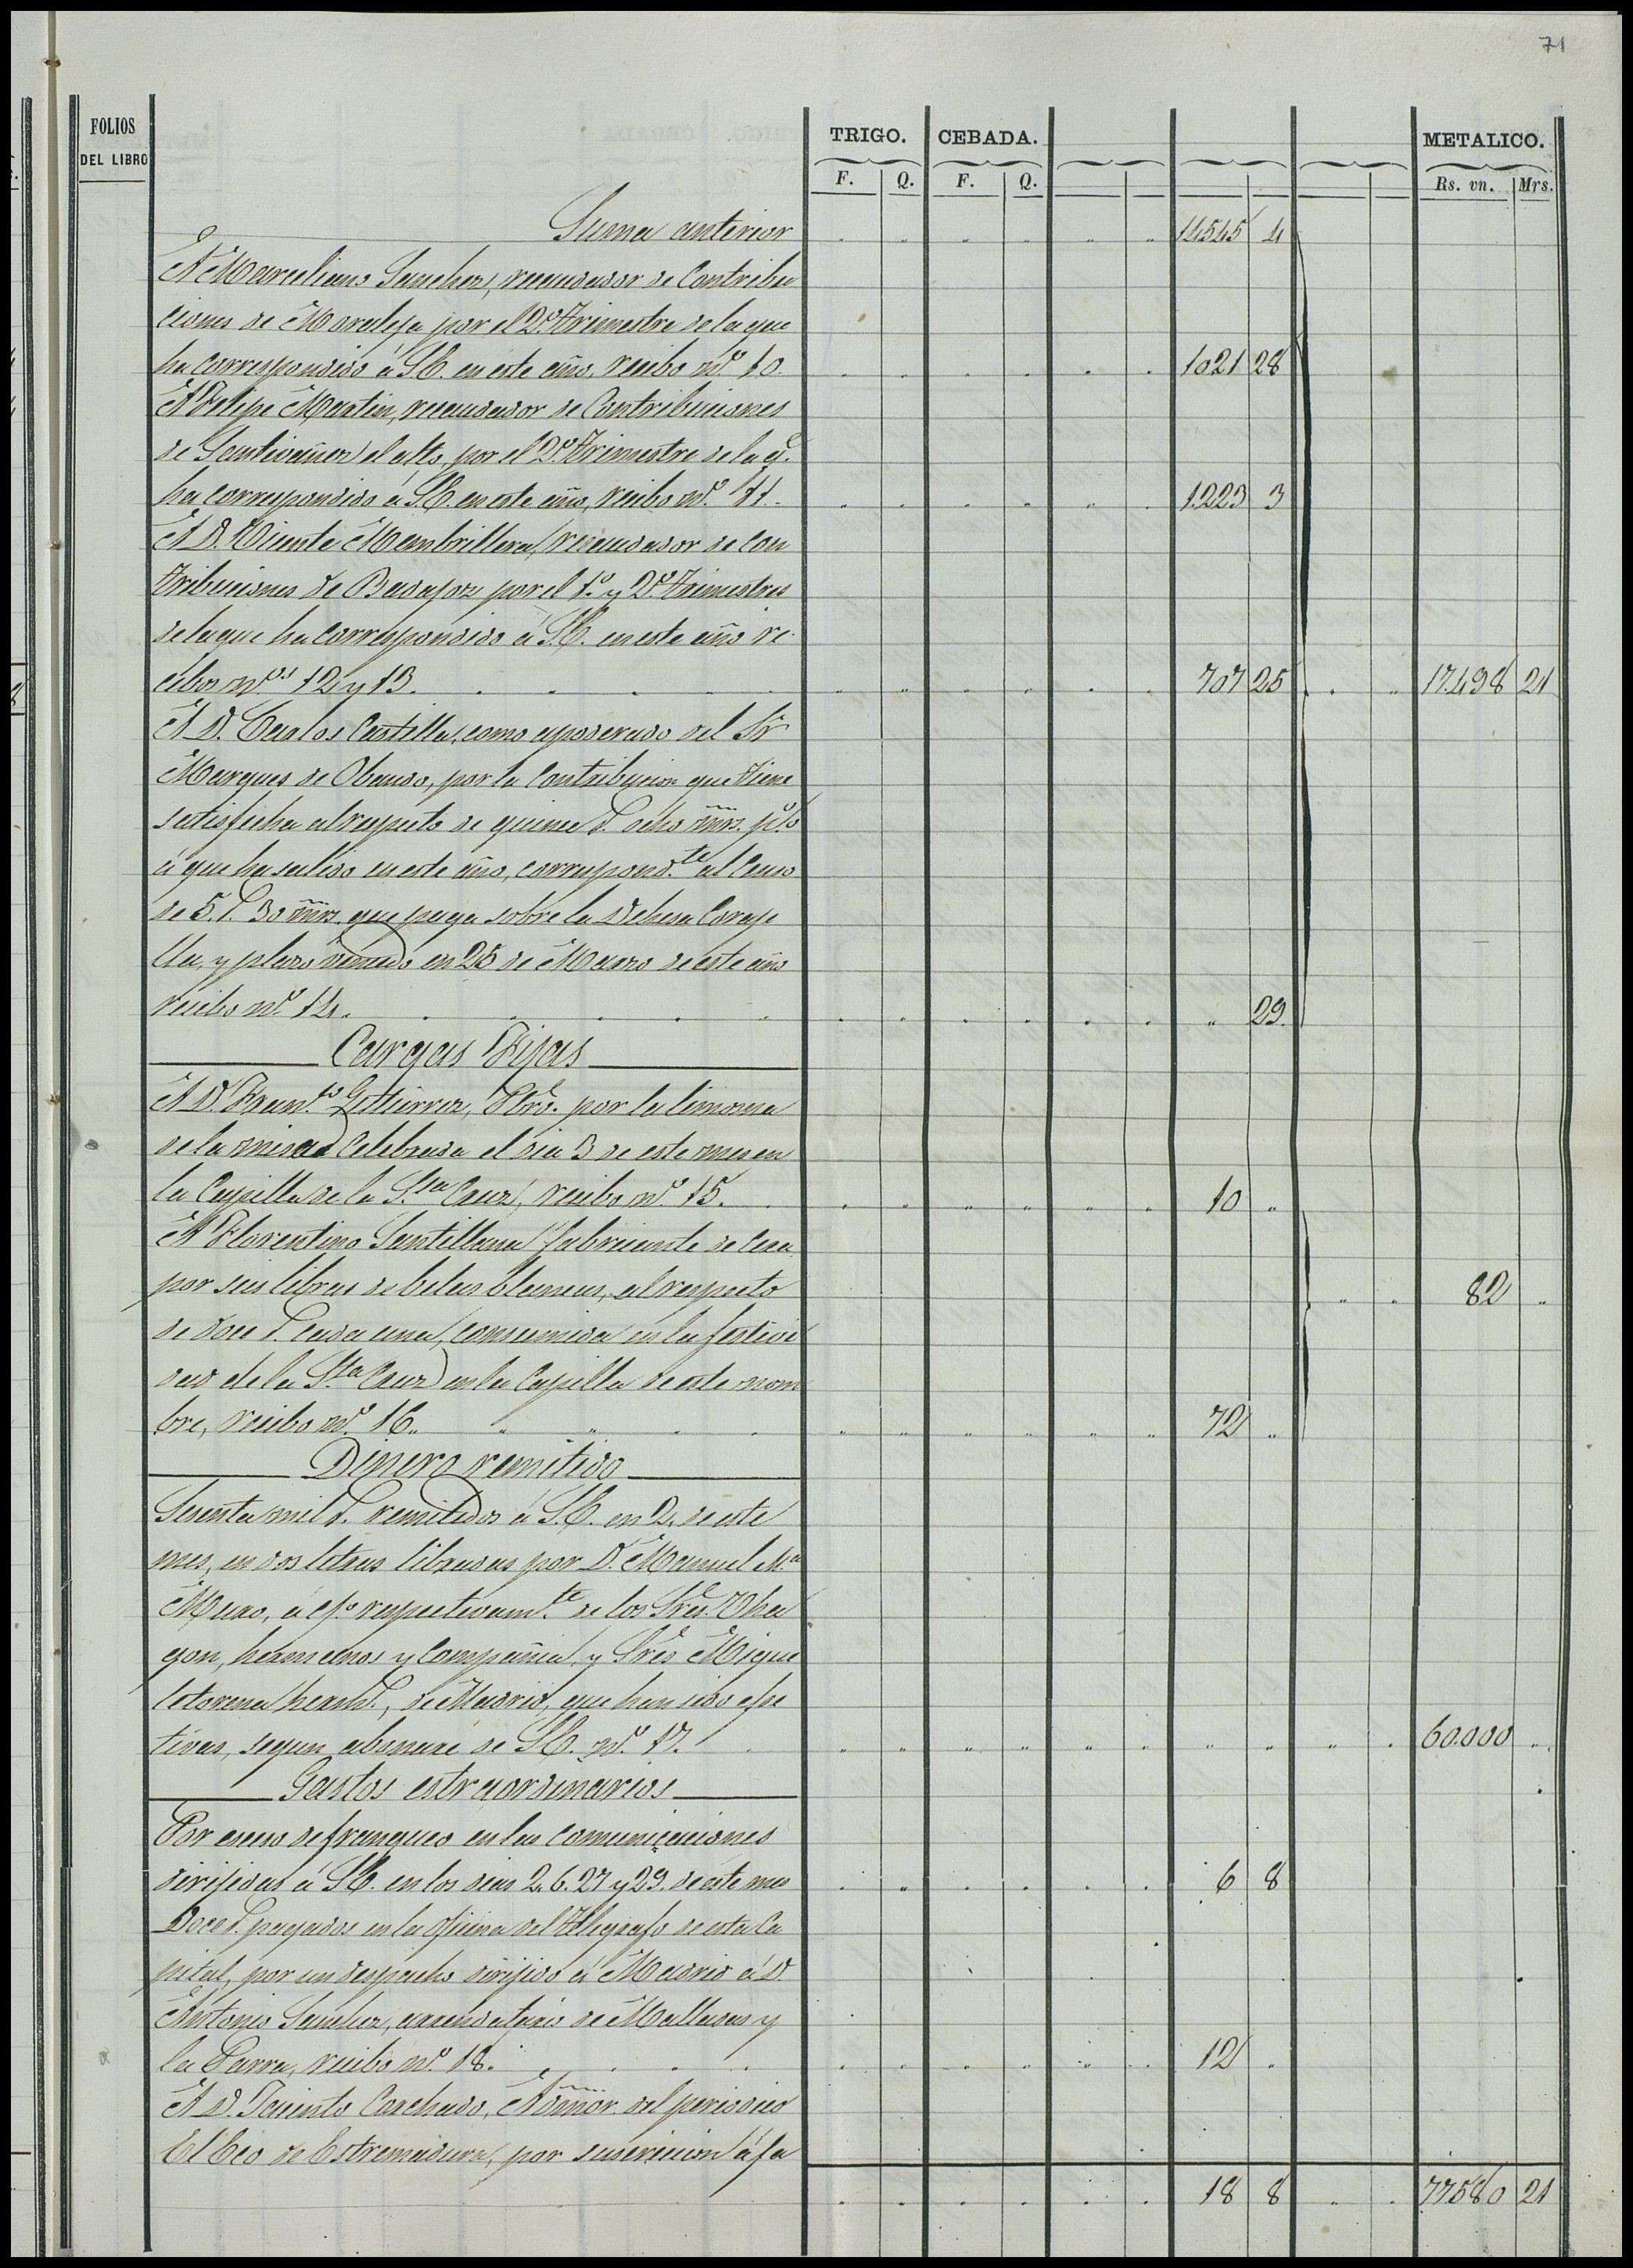 71
FOLIOS
DEL LIBRO
TRIGO. CEBADA. METALICO.
F. Q. F. Q. Rs. vn. Mrs.
Suma anterior 14545 4
A Marceliano Sanchez, recaudador de Contribu
ciones de Moraleja por el 2º trimestre de la que
ha correspondido á S.E. en este año, recibo nº 10. 1021 28
A Felipe Martin, recaudador de Contribuciones
de Santivañez el alto, por el 2º trimestre de la q.
ha correspondido á S.E. en este año, recibo nº 11. 1.223 3
A D. Vicente Membrillera, recaudador de Con
tribuciones de Badajoz por el 1º y 2º trimestres
de la que ha correspondido á S.E. en este año re
cibos nos 12 y 13. 707 25 17.498 21
A D. Carlos Castilla, como apoderado del Sr
Marques de Obando, por la Contribucion que tiene
satisfecha al respecto de quince r. ocho mrs. pº/o
á que ha salido en este año, correspondte al Censo
de 5 r. 30 mrs. que paga sobre la Dehesa Coraje
lla, y plazo vencido en 25 de Marzo de este año
recibo nº 14. 29.
Cargas Fijas
A D. Franco Gutierrez, Pbro. por la limosna
de la misa celebrada el dia 3 de este mes en
la Capilla de la Sta Cruz, recibo nº 15. 10
A Florentino Santillana fabricante de Cera
por seis libras de belas blancas, al respecto 82
de doce r. cada una, consumida en la festivi
dad de la Sta Cruz en la Capilla de este nom
bre, recibo nº 16. 72
Dinero remitido
Sesenta mil r. remitidos á S.E. en 2. de este
mes, en dos letras libradas por D. Manuel Mª
Muro, á c/o respectivamte de los Sres. Uha
gon, hermanos y Compañia, y Sres Migue
letorena hermos, de Madrid, que han sido efec
tivas, segun abonaré de S.E. nº 17. 60.000
Gastos estraordinarios
Por esceso de franqueo en las comunicaciones
dirijidas á S.E. en los dias 2. 6. 27 y 29. de este mes 6 8
Doce r. pagados en la oficina del Telegrafo de esta Ca
pital, por un despacho dirijido á Madrid á D.
Antonio Sanchez, arrendatario de Malladas y
la Parra, recibo nº 18. 12
A D. Jacinto Carchado, Admor. del periodico
El Eco de Estremadura, por suscricion á fa
18 8 77580 21